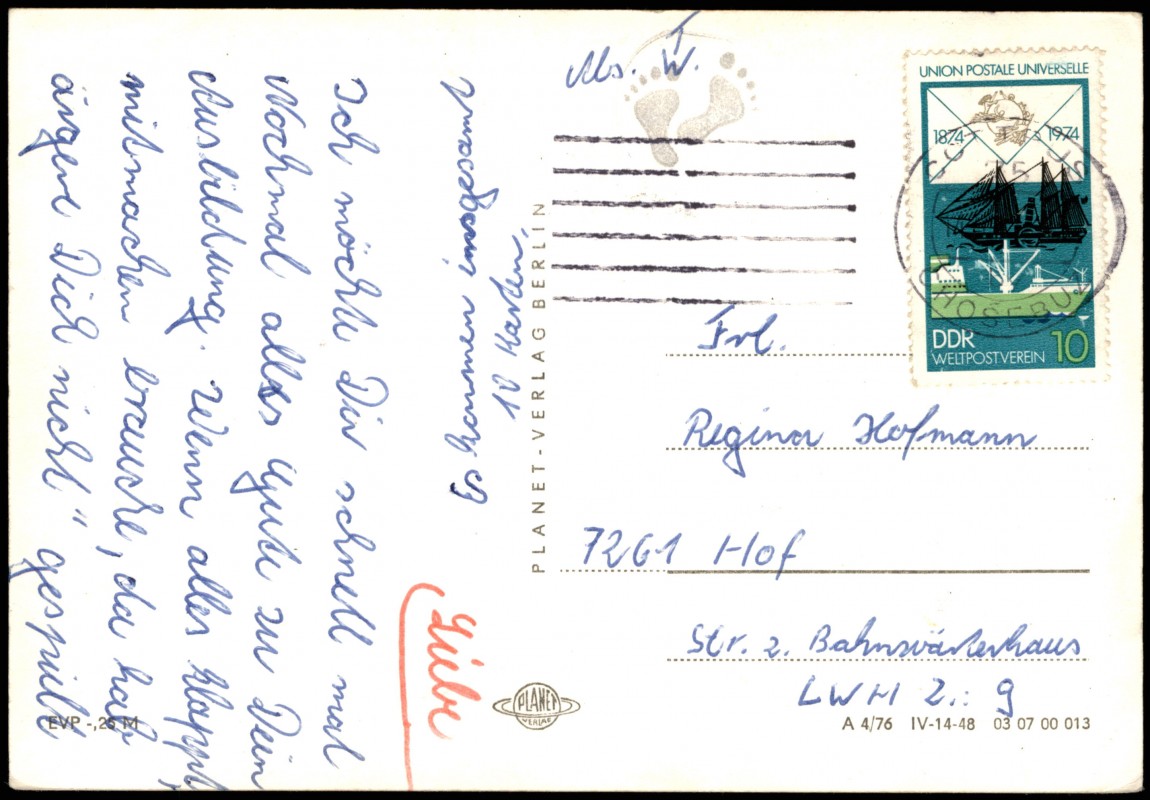 Abs. W.
UNION POSTALE UNIVERSELLE
1874 1974
DDR
WELTPOSTVEREIN 10
CHOSEBUZ
Frl.
Regina Hofmann
7261 Hof
Str. z. Bahnwärterhaus
LWH Z.: 9
10 Karten,
Liebe
Ich möchte Dir schnell mal
Nochmal alles Gute zu Dein
Ausbildung. Wenn alles klappt,
mitmachen brauche, da hab
ärgere Dich nicht" gespielt
PLANET-VERLAG BERLIN
PLANET
VERLAG
EVP -,25 M
A 4/76 IV-14-48 03 07 00 013